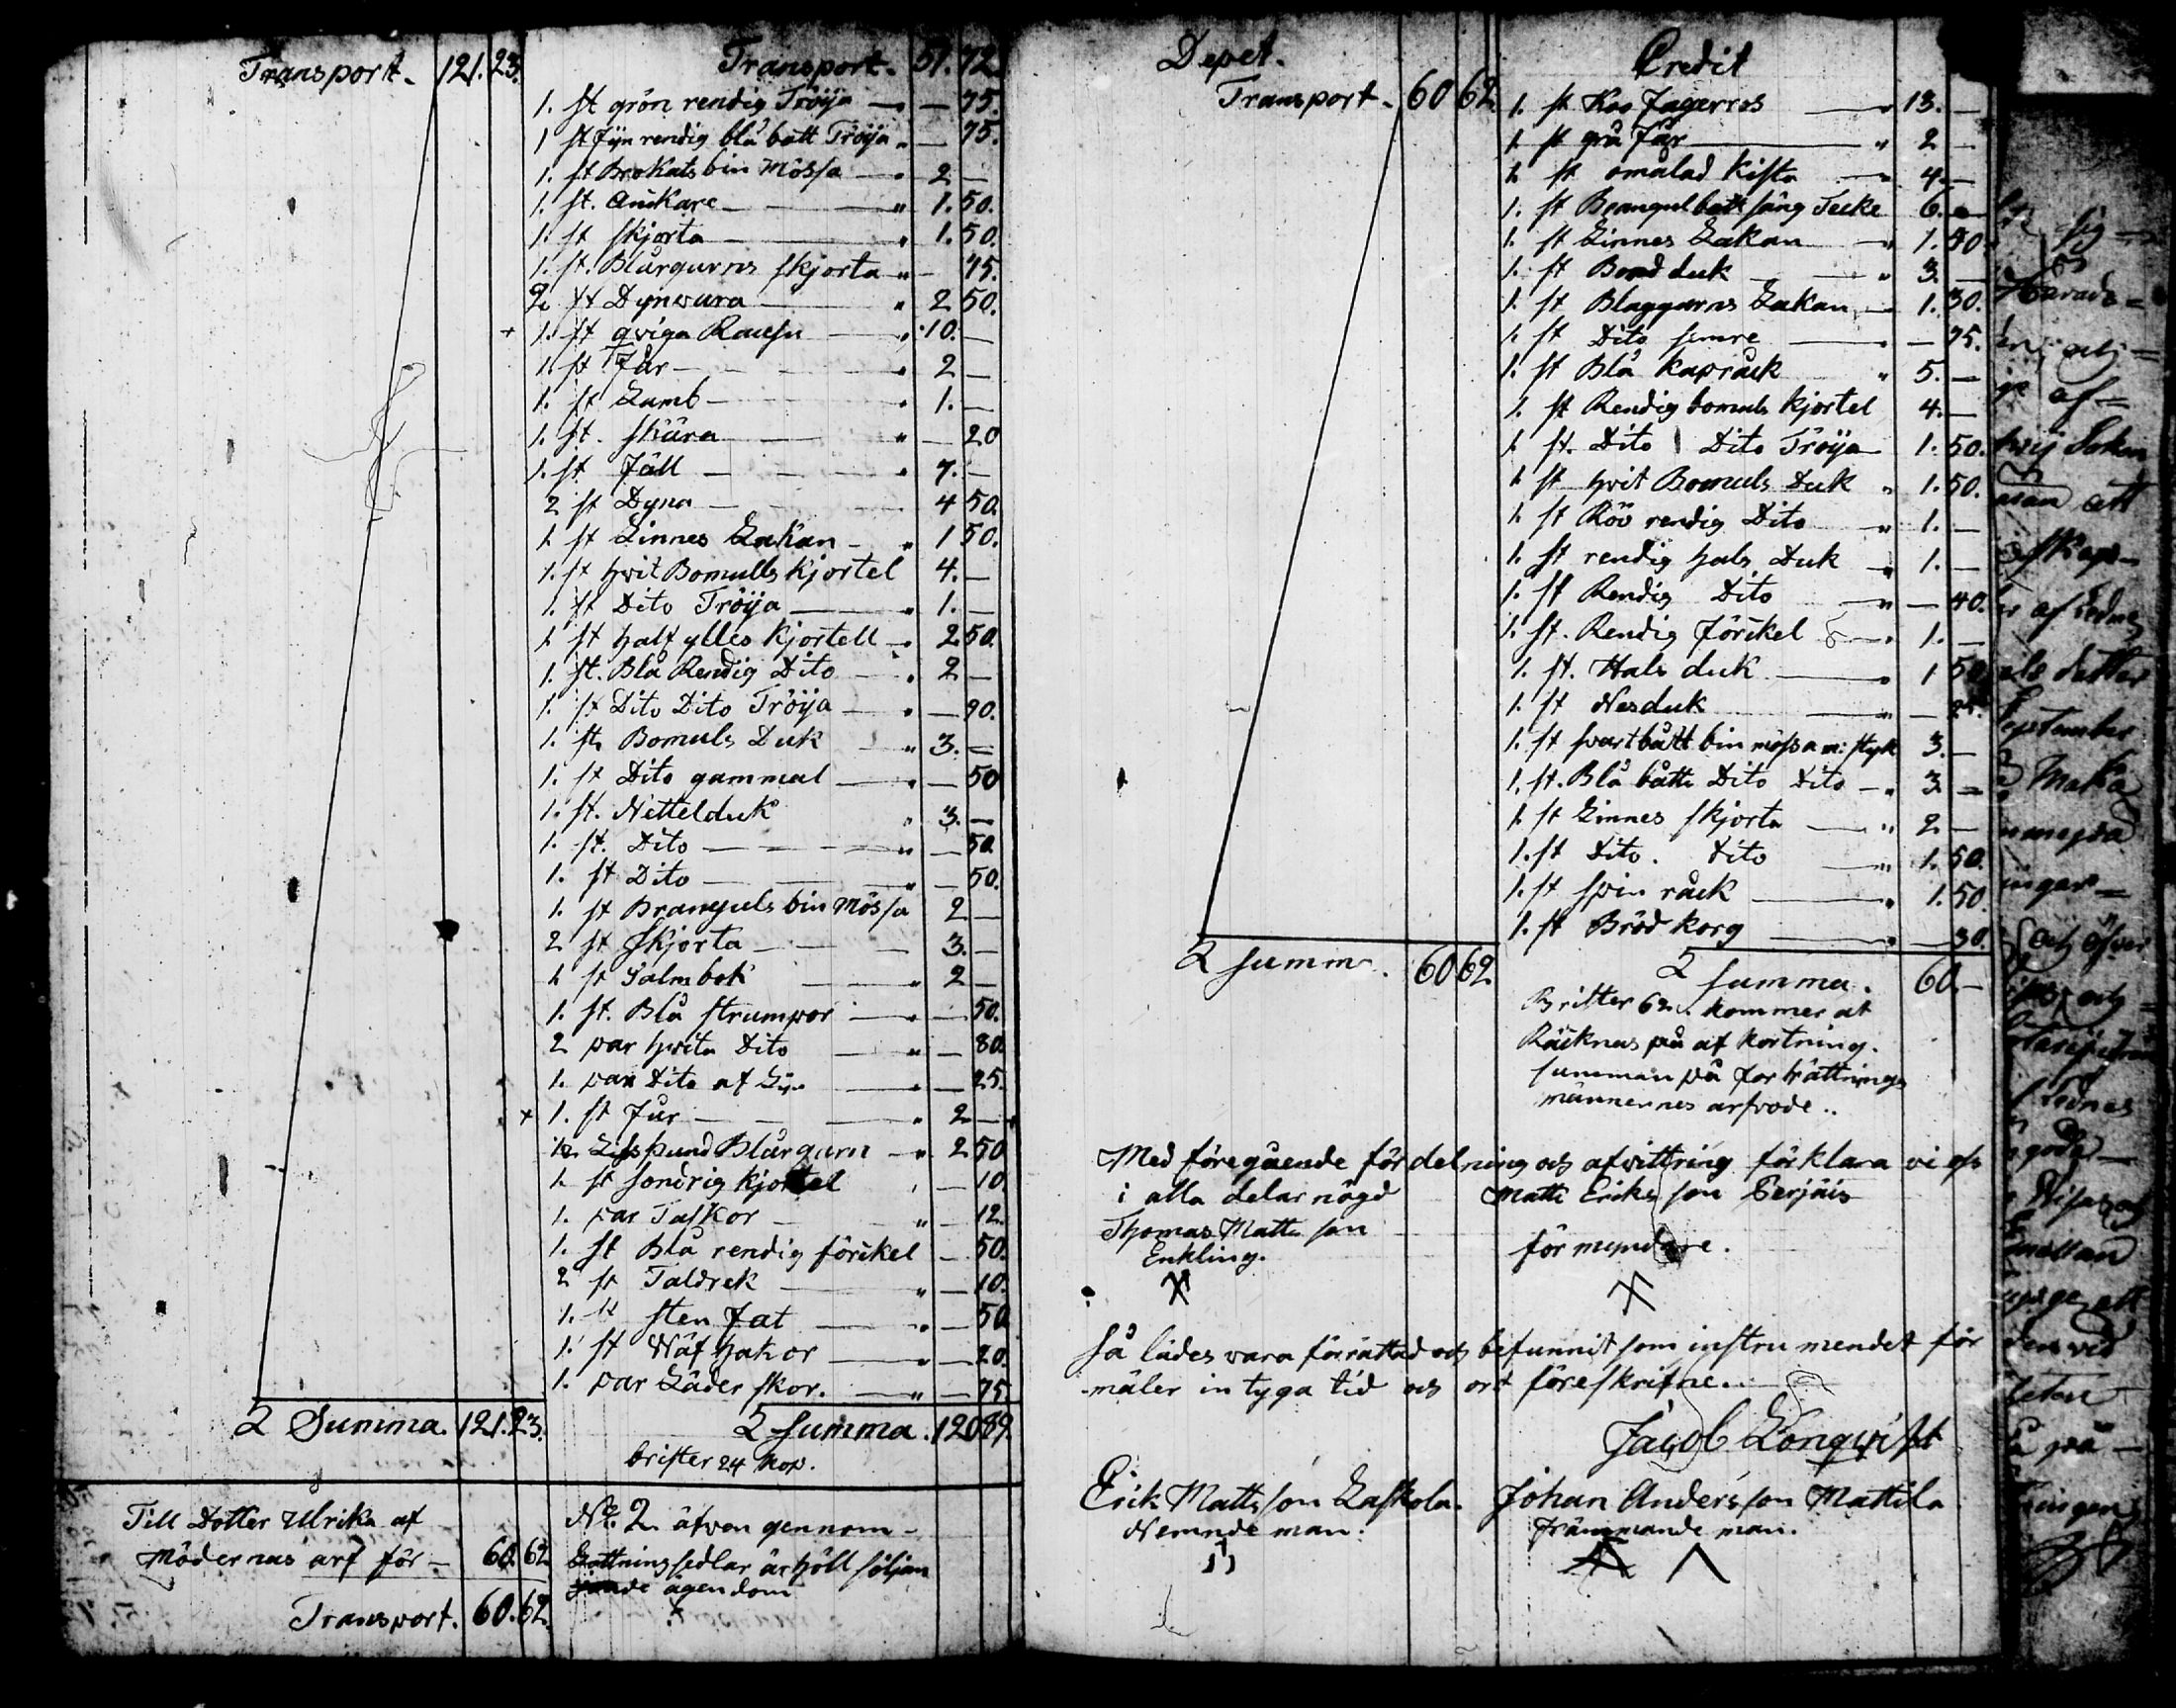 Transport. 121. 23.
Transport. 51. 72.
1. st grön rendig Tröija — — 75.
1 st fijn rendig blå bått Tröija " — 75.
1. st Brokats bin Mössa — " 2 —
1. st. Ankare — " 1. 50.
1. st skjorta — " 1. 50.
1. st. Blårgarns skjorta " — 75.
2 st Dynwara — " 2 50.
+ 1. st qviga Rausu — " 10. —
1. st Får — " 2 —
1. st Lamb — " 1. —
1. st. skära — " — 20
1. st Fäll — " 7. —
2 st Dyna — 4 50.
1 st Linnes Lakan — " 1 50.
1. st hvit Bomulls kjortel 4. —
1. st Dito Tröija — " 1. —
1 st half ylles kjortell — " 2 50.
1. st. Blå Rendig Dito — " 2 —
1. st Dito Dito Tröija — " — 90.
1. st Bomuls Duk — " 3. —
1. st Dito gammal — " — 50
1. st. Nettelduk " 3. —
1. st. Dito — " — 50.
1. st Dito — " — 50.
1. st Branguls bin Mössa 2 —
2 st Skjorta — 3. —
1 st Salmbok — " 2 —
1. st. Blå strumpor — " — 50.
2 par hvita Dito — " — 80.
1. par Dito af — " — 25.
+ 1. st Får — " 2 —
1/2 Lisspund Blårgarn — " 2 50
1. st sondrig kjortel " — 10.
1. par Taskor — " — 12.
1. st Blå rendig förikel — 50.
2 st Taldrek — " — 10.
1. st sten fat — " — 50
1. st Wäf hakor — " — 20.
1. par Läder skor. — " — 75
Summa. 121. 23.
Summa. 120 89.
brister 24 kop.
Till Dotter Ulrika af
Mödernas arf för — 60. 62
Transport. 60. 62.
No. 2 äfven gennom-
Lottningssedlar ärhöll följan
ägendom
Depet.
Transport. 60 62.
Credit
1. st Koo Fagerros — " 13. —
1. st grå Får — " 2 —
1 st omålad kista — " 4. —
1. st Brangul bått säng Tecke 6. —
1. st Linnes Lakan — " 1. 50.
1. st Bord duk — " 3. —
1. st Blaggarns Lakan — 1. 30.
1. st Dito semre — " — 75.
1. st Blå kapråck " 5. —
1. st Rendig bomuls kjortel 4. —
1 st. Dito Dito Tröija 1. 50.
1 st hvit Bomuls Duk " 1. 50.
1. st Röö rendig Dito — " 1. —
1. st rendig hals Duk — " 1. —
1. st Rendig Dito — " — 40.
1. st. Rendig förikel — " 1. —
1. st. Hals duk — " 1 50
1. st Nesduk — " —
1. st svart bått bin mössa m: styk 3. —
1. st. Blå båtti Dito Dito — " 3. =
1. st Linnes skjorta — " 2 —
1. st Dito. Dito — " 1. 50.
1. st spin råck — " 1. 50.
1. st Bröd korg — " — 30.
Summa. 60 62.
Summa. 60. —
Brister 62 k. kommer at
Räcknas på af kortning.
summan på förrättnings
männernes arfvode..
Med föregående fördelning och afvittring förklara vi oss
i alla delar nögd Matts Eriks son Perjäis
Thomas Matts son
Enkling. förmyndare.
Så lädes vara förrättad och befunnit som instrumendet för
mäler intyga tid och ort föreskrifne..
Jacob Lönqvist
Erik Matts son Laskola. Johan Anders son Mattila
Nemnde man. främmande man.
sig
Härads=
af=
man ätt
dotter
September
Maka
ingar=
och öfver
och